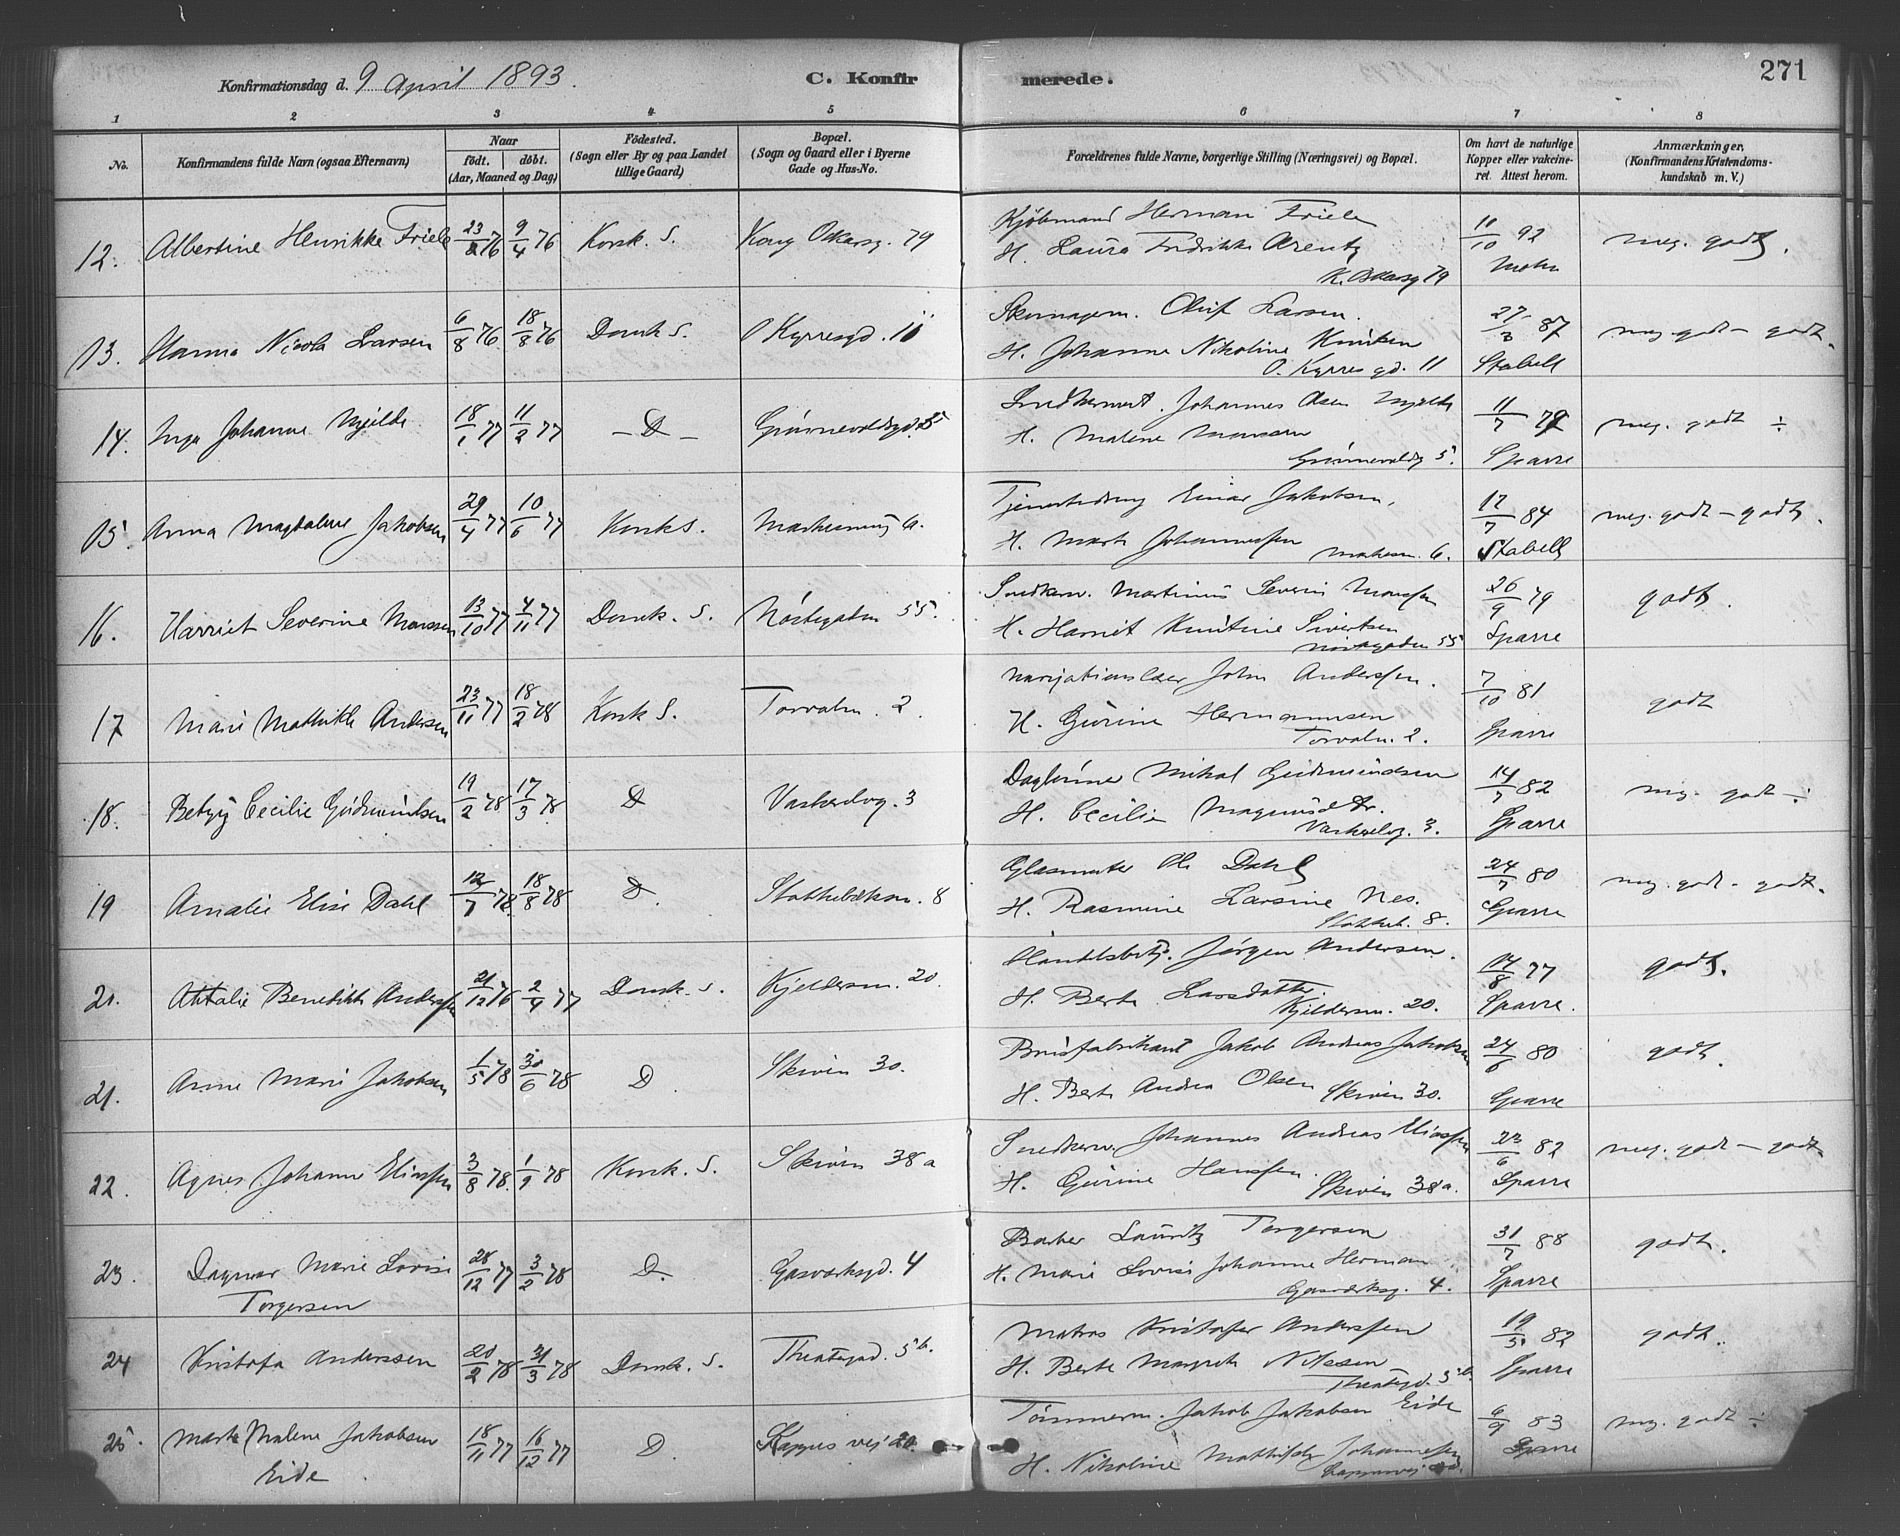 Konfirmationsdag d. 9 April 1893.
C. Konfirmerede.
271
1 2 3 4 5 6 7 8
No.
Konfirmandens fulde Navn (ogsaa Efternavn)
Naar
födt. döbt.
(Aar, Maaned og Dag)
Födested.
(Sogn eller By og paa Landet
tillige Gaard)
Bopæl.
(Sogn og Gaard eller i Byerne
Gade og Hus-No.
Forældrenes fulde Navne, borgerlige Stilling (Næringsvei) og Bopæl.
Om havt de naturlige
Kopper eller vakcine-
ret. Attest herom.
Anmærkninger,
(Konfirmandens Kristendoms-
kundskab m. V.)
12. Albertine Henrikke Friele 23/2 76 9/4 76 Korsk. S. Kong Oskarsg. 79
Kjöbmand Herman Friele
H. Laura Fredrikke Arentz
K. Oskarsg 79
11/10 92
Mohn
meg. godt.
13. Hanna Nicola Larsen 6/8 76 18/8 76 Domk S. O Kyrresgd. 11
Skomagerm. Oluf Larsen.
H. Johanne Nikoline Knutsen
O. Kyrres gd. 11
27/3 87
Stabell
meg godt - godt.
14. Inga Johanne Mjelde 18/1 77 11/2 77 - D -
Johannes Olsen Mjelde
H. Malene Monsen
5.
11/7 79
Sparre
meg. godt ÷
15. Anna Magdalene Jakobsen 29/4 77 10/6 77 Korsk S. 6.
Einar Jakobsen,
H. Marte Johannessen
6.
17/7 84
Stabell
meg. godt - godt.
16. Harriet Severine Monssen 13/10 77 4/11 77 Domk. S. Nöstegaden 55.
Snedkersv. Martinus Severin Monssen
H. Harriet Knutine Sivertsen
Nöstegaden 55
26/9 79
Sparre
godt.
17 Marie Mathilde Andersen 23/11 77 18/2 78 Korsk S. Torvalm. 2.
Navigationslærer John Anderssen.
H. Gurine Hermannsen
Torvalm. 2.
7/10 81
Sparre
godt
18. Betzy Cecilie Gudmundsen 19/2 78 17/3 78 D Vaskerelvg. 3
Daglönner Mikal Gudmundsen
H. Cecilie Magnusd.tr.
Vaskerelvg. 3.
14/7 82
Sparre
meg. godt ÷
19 Amalie Elise Dahl 12/7 78. 18/8 78 D. 8
Glasmester Ole Dahl
H. Rasmine Larsine Nes.
8.
24/7 80
Sparre
meg. godt - godt.
20. Attalie Benedikte Anderssen 21/12 76 2/4 77 Domk. S. Kjeldersm. 20.
Jörgen Andersen.
H. Berte Larsdatter
Kjeldersm. 20.
14/8 77
Sparre.
godt.
21. Anne Marie Jakobsen 1/5 78 30/6 78 D. Skiven 30.
Brusfabrikant Jakob Andreas Jakobsen
H. Berte Andrea Olsen Skiven 30.
24/6 80
Sparre
godt.
22. Agnes Johanne Eliassen 3/8 78. 1/9 78 Korsk. S. Skiven 38a
Snedkersv. Johannes Andreas Eliassen
H. Gurine Hanssen. Skiven 38a.
23/6 82
Sparre
meg. godt - godt
23. Dagmar Marie Lovise
Torgersen
28/12 77 3/2 78 D. Gasværksgd. 4
Barber Lauritz Torgersen
H. Marie Lovise Johanne Herman
Gasværksg. 4.
31/7 88
Sparre
godt.
24 Kristofa Anderssen 20/2 78 31/3 78 Domk. S. Theatergd. 5b.
Matros Kristofer Anderssen
H. Berte Margrete Nilssen
Theatergd. 5b
19/5 82
Sparre
godt.
25. Marte Malene Jakobsen
Eide.
18/11 77 16/12 77 D. Kappes vej 20.
Tömmerm. Jakob Jakobsen Eide
H. Nikoline Mathilde Johannessen
6/9 83
Sparre
meg. godt ÷